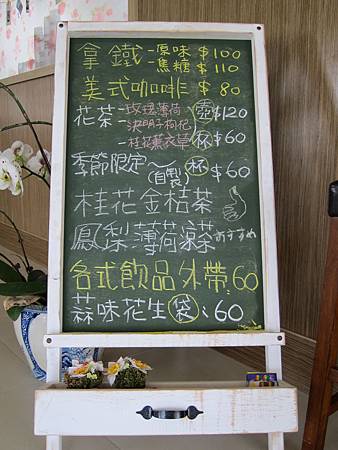 拿鐵-原味 $100
-焦糖 $110
美式咖啡 $80
花茶-玫瑰薄荷 壺$120
-決明子枸杞
-桂花薰衣草 杯$60
季節限定(自製) 杯 $60
桂花金桔茶
鳳梨薄荷茶 おすすめ
各式飲品外帶:60
蒜味花生 袋:60